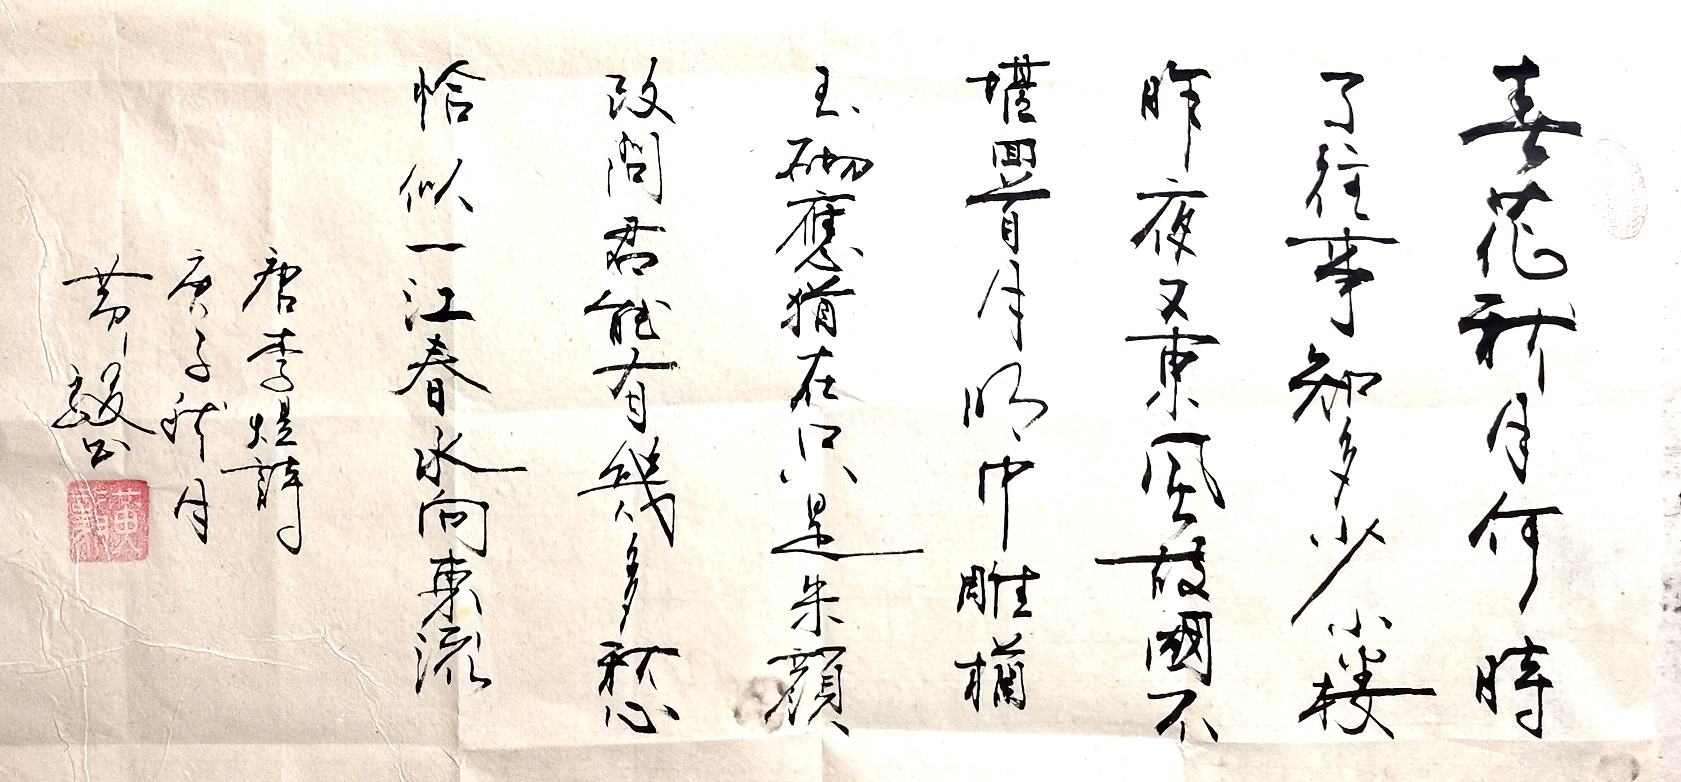 春花秋月何時
了往事知多少小楼
昨夜又東風故國不
堪回首月明中雕欄
玉砌應猶在只是朱顔
改問君能有幾多愁
恰似一江春水向東流
唐李煜詩
庚子秋月
毅书